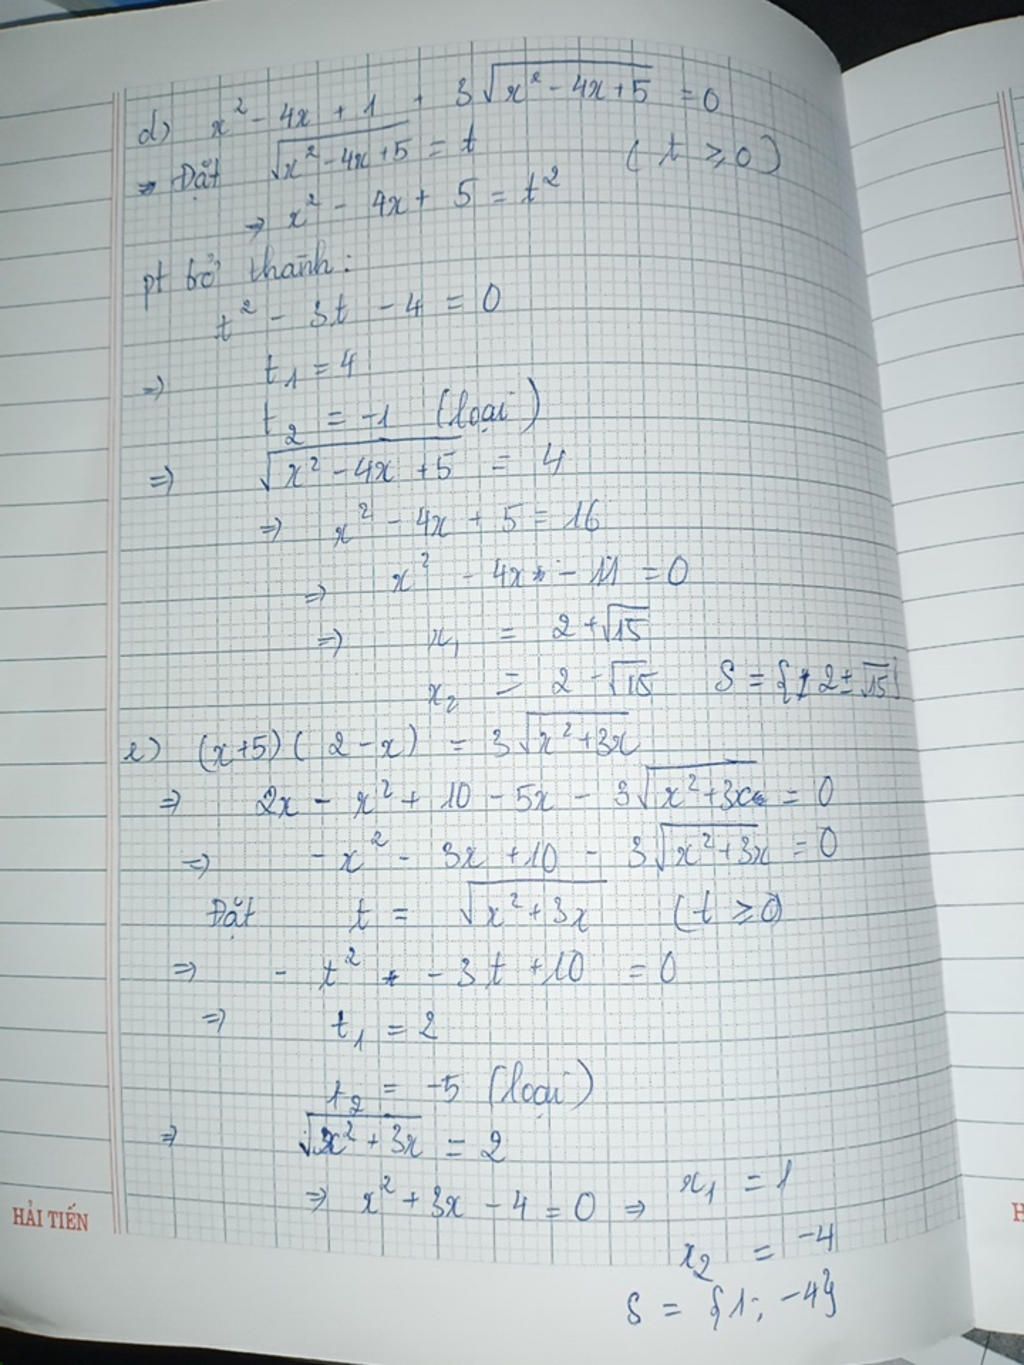 d) x² - 4x + 1 - 3√(x² - 4x + 5) = 0
=> Đặt √(x² - 4x + 5) = t (t ≥ 0)
=> x² - 4x + 5 = t²
pt trở thành:
t² - 3t - 4 = 0
=> t₁ = 4
t₂ = -1 (loại)
=> √(x² - 4x + 5) = 4
=> x² - 4x + 5 = 16
=> x² - 4x - 11 = 0
=> x₁ = 2 + √15
x₂ = 2 - √15 S = {2 ± √15}
e) (x+5)(2-x) = 3√(x²+3x)
=> 2x - x² + 10 - 5x - 3√(x²+3x) = 0
=> -x² - 3x + 10 - 3√(x²+3x) = 0
Đặt t = √(x²+3x) (t ≥ 0)
=> -t² - 3t + 10 = 0
=> t₁ = 2
t₂ = -5 (loại)
=> √(x²+3x) = 2
=> x² + 3x - 4 = 0 => x₁ = 1
x₂ = -4
S = {1; -4}
HẢI TIẾN
H